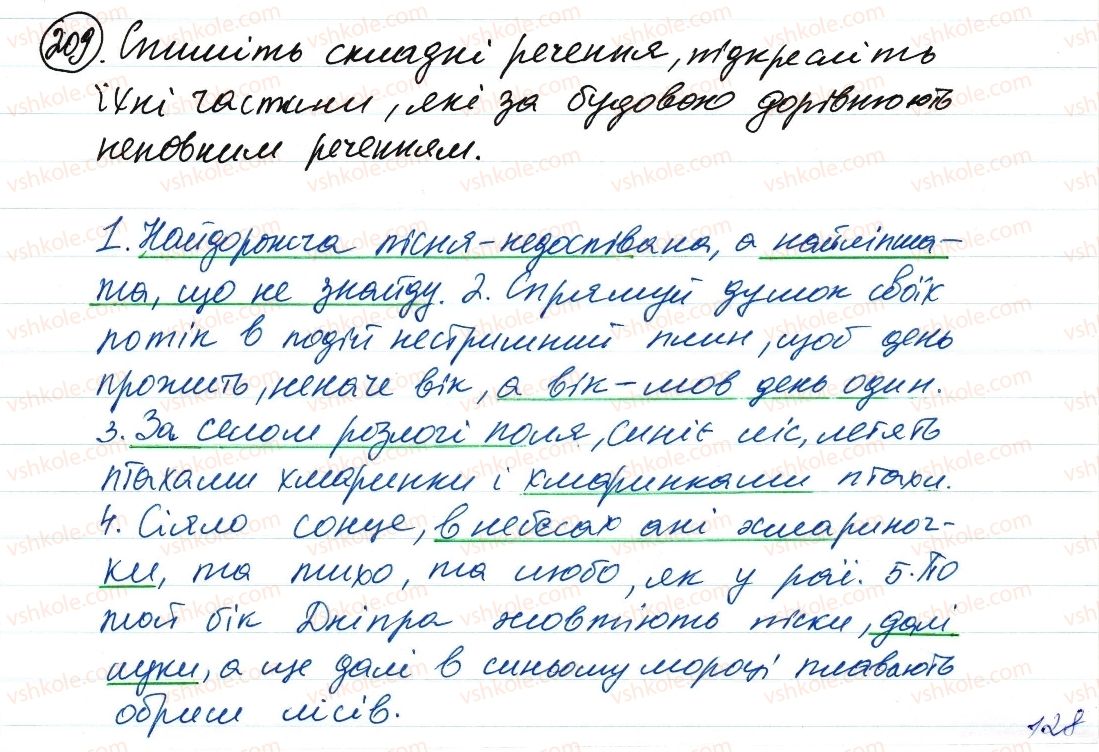 209. Спишіть складні речення, підкресліть
їхні частини, які за будовою дорівнюють
неповним реченням.
1. Найдорожча пісня - недоспівана, а найліпша -
та, що не знайду. 2. Спрямуй думок своїх
потік в подій нестримний плин, щоб день
прожить, неначе вік, а вік - мов день один.
3. За селом розлогі поля, синіє ліс, летять
птахами хмаринки і хмаринками птахи.
4. Сіяло сонце, в небесах ані хмариноч-
ки, та тихо, та любо, як у раї. 5. По
той бік Дніпра жовтіють піски, далі
луки, а ще далі в синьому мороці плавають
обриси лісів.
128